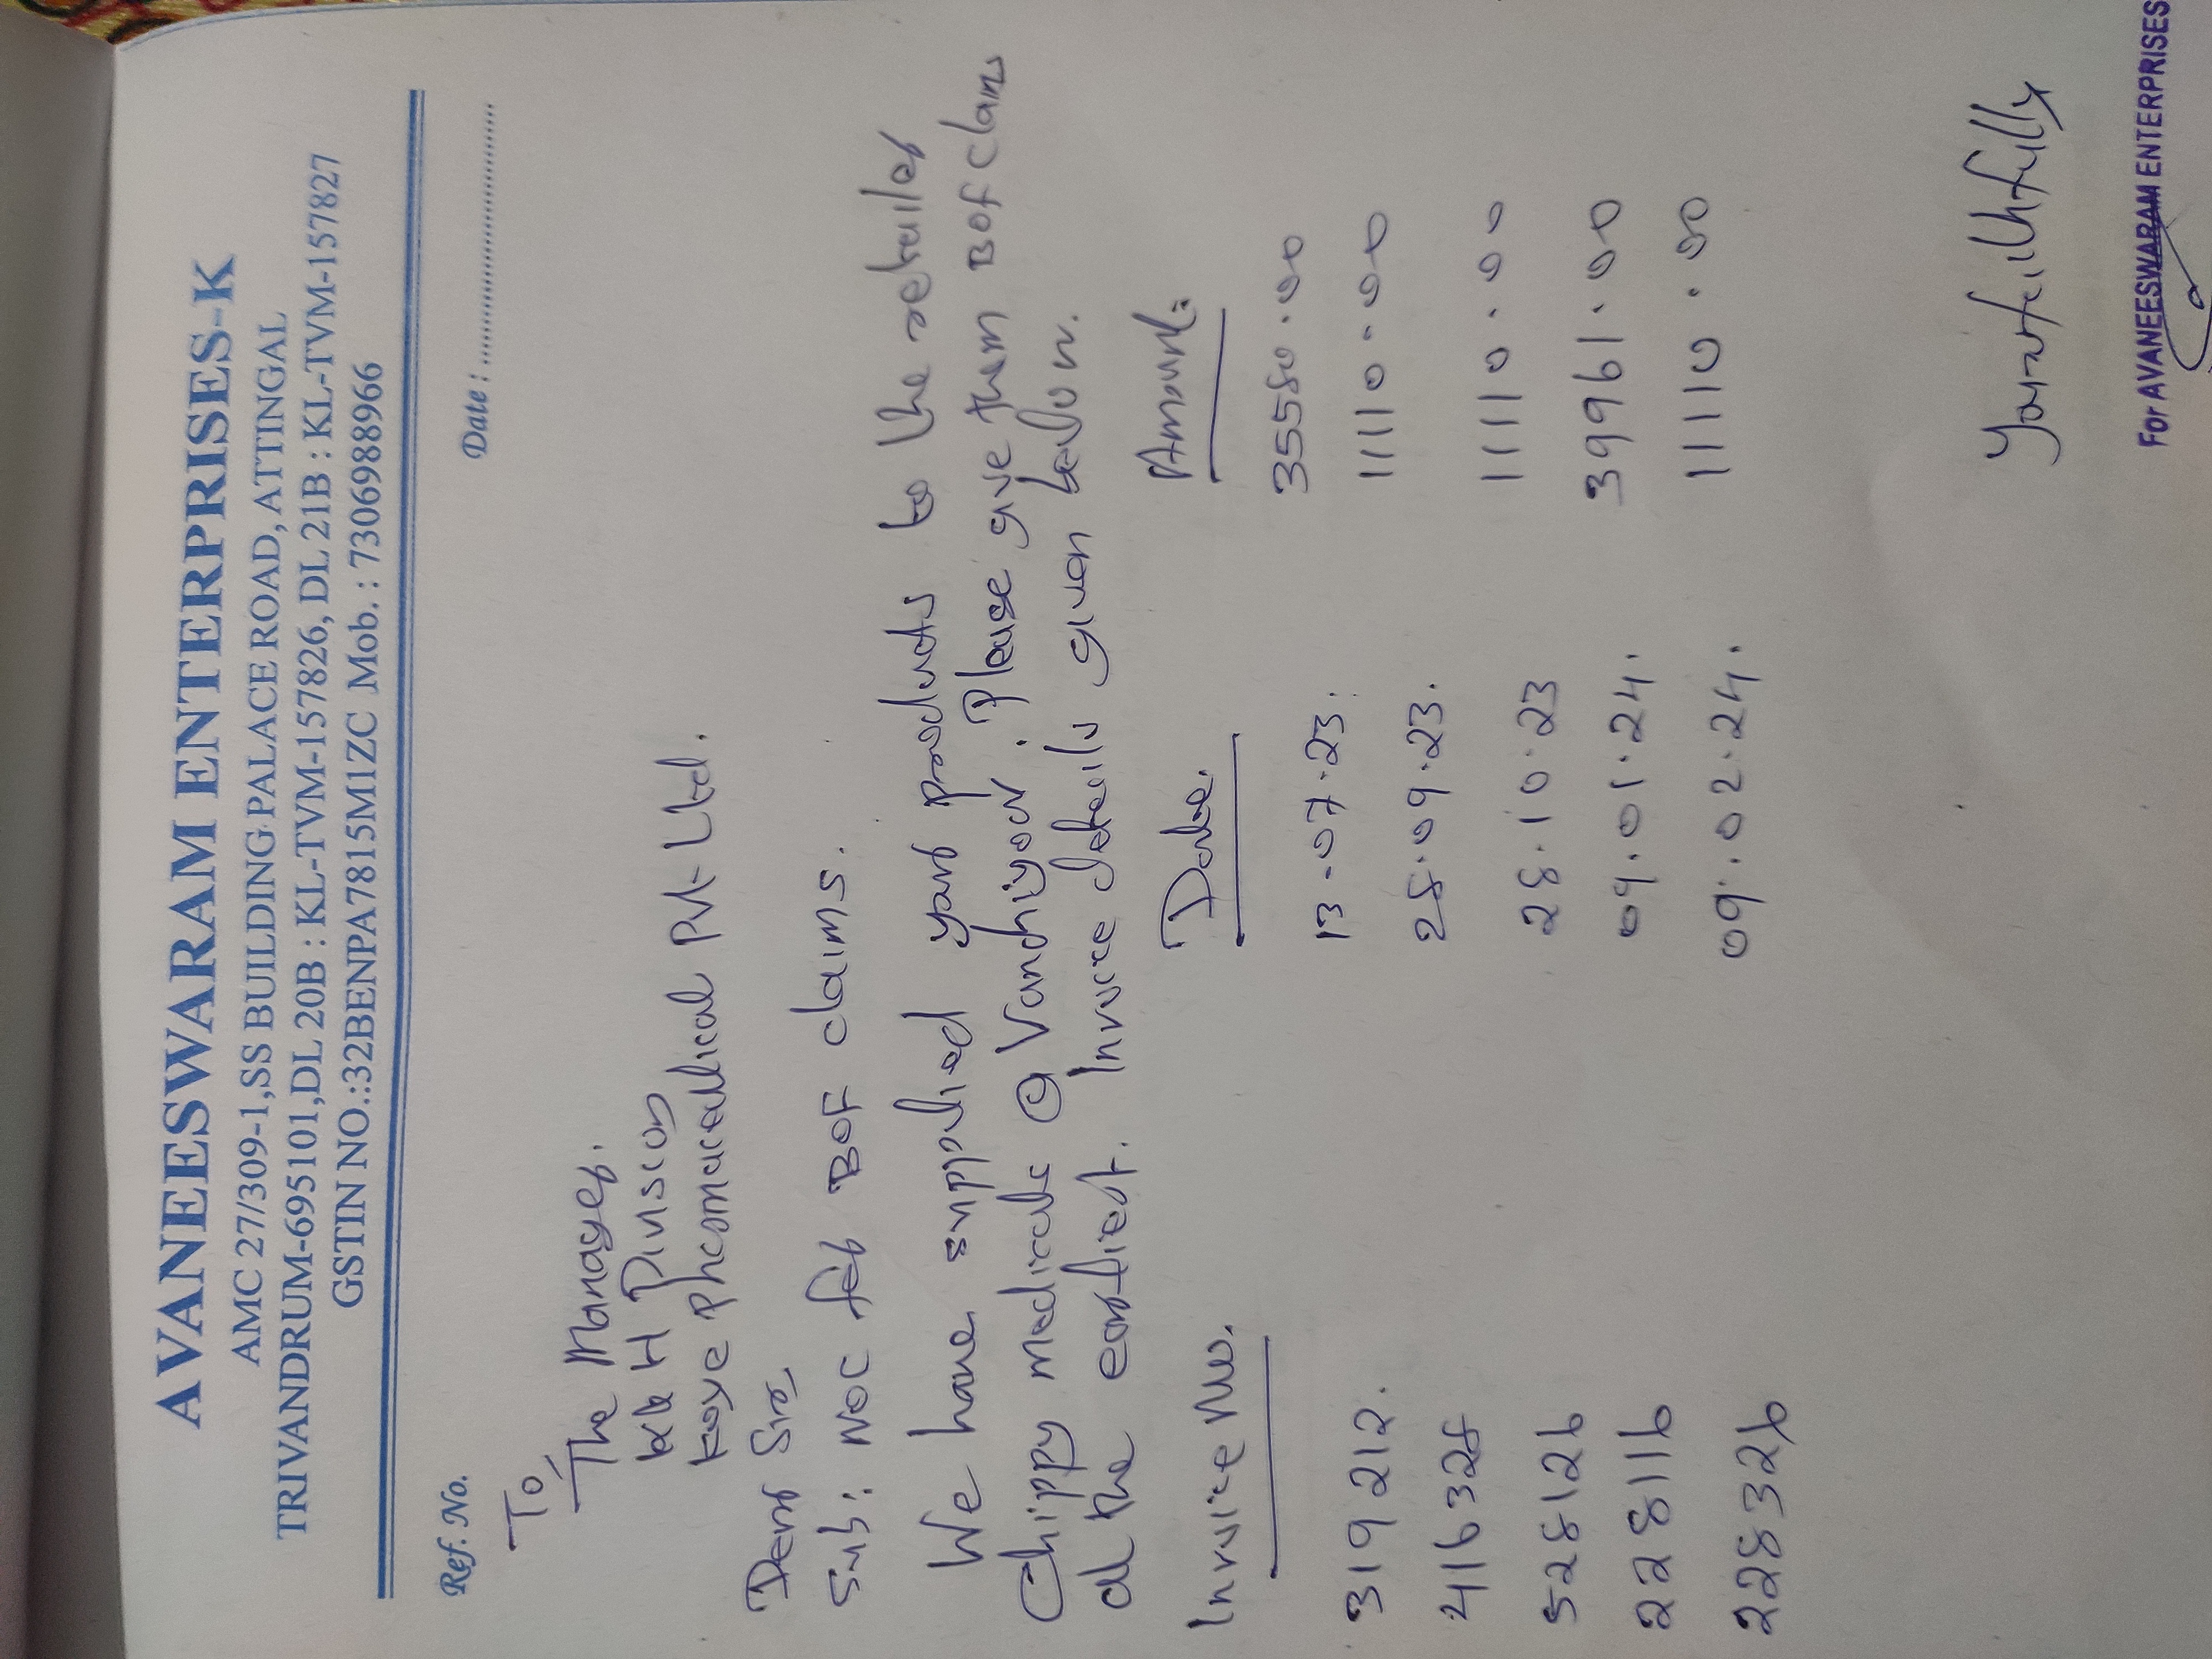 AVANEESWARAM ENTERPRISES-K
AMC 27/309-1,SS BUILDING PALACE ROAD, ATTINGAL
TRIVANDRUM-695101,DL 20B : KL-TVM-157826, DL 21B : KL-TVM-157827
GSTIN NO.:32BENPA7815M1ZC Mob. : 7306988966
Ref. No. Date :
To,
The Manager.
KKH Division
Kaye Pharmaceutical Pvt-Ltd.
Dear Sir
Sub: NOC for BOF claims.
We have supplied your products to the retailer
Chippy medicals @ Vanchiyoor. Please give them BOF claims
at the earliest. Invoice details given below.
Invoice No. Date. Amount:
319212. 13-07-23: 35580.00
416328 28.09.23. 11110.00
528126 28.10.23 11110.00
228116 09.01.24. 39961.00
228326 09.02.24. 11110.00
Yours faithfully
For AVANEESWARAM ENTERPRISES